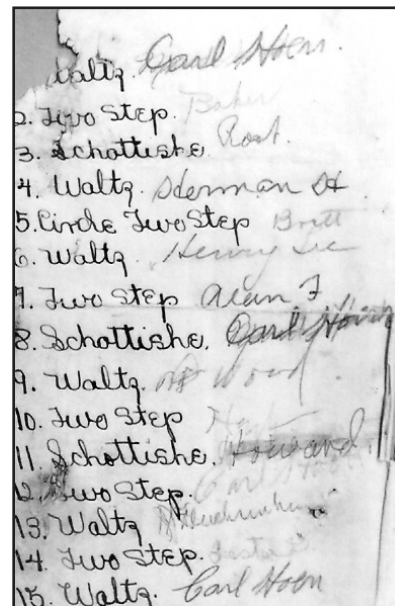 Waltz. Carl Hoen.
2. Two Step. Baker
3. Schottishe. Root.
4. Waltz. Herman H
5. Circle Two Step Britt
6. Waltz. Henry Lee
7. Two Step Alan F
8. Schottishe. Carl Hoen
9. Waltz. Wood
10. Two Step
11. Schottishe. Howard
12. Two Step. Carl
13. Waltz
14. Two Step.
15. Waltz. Carl Hoen